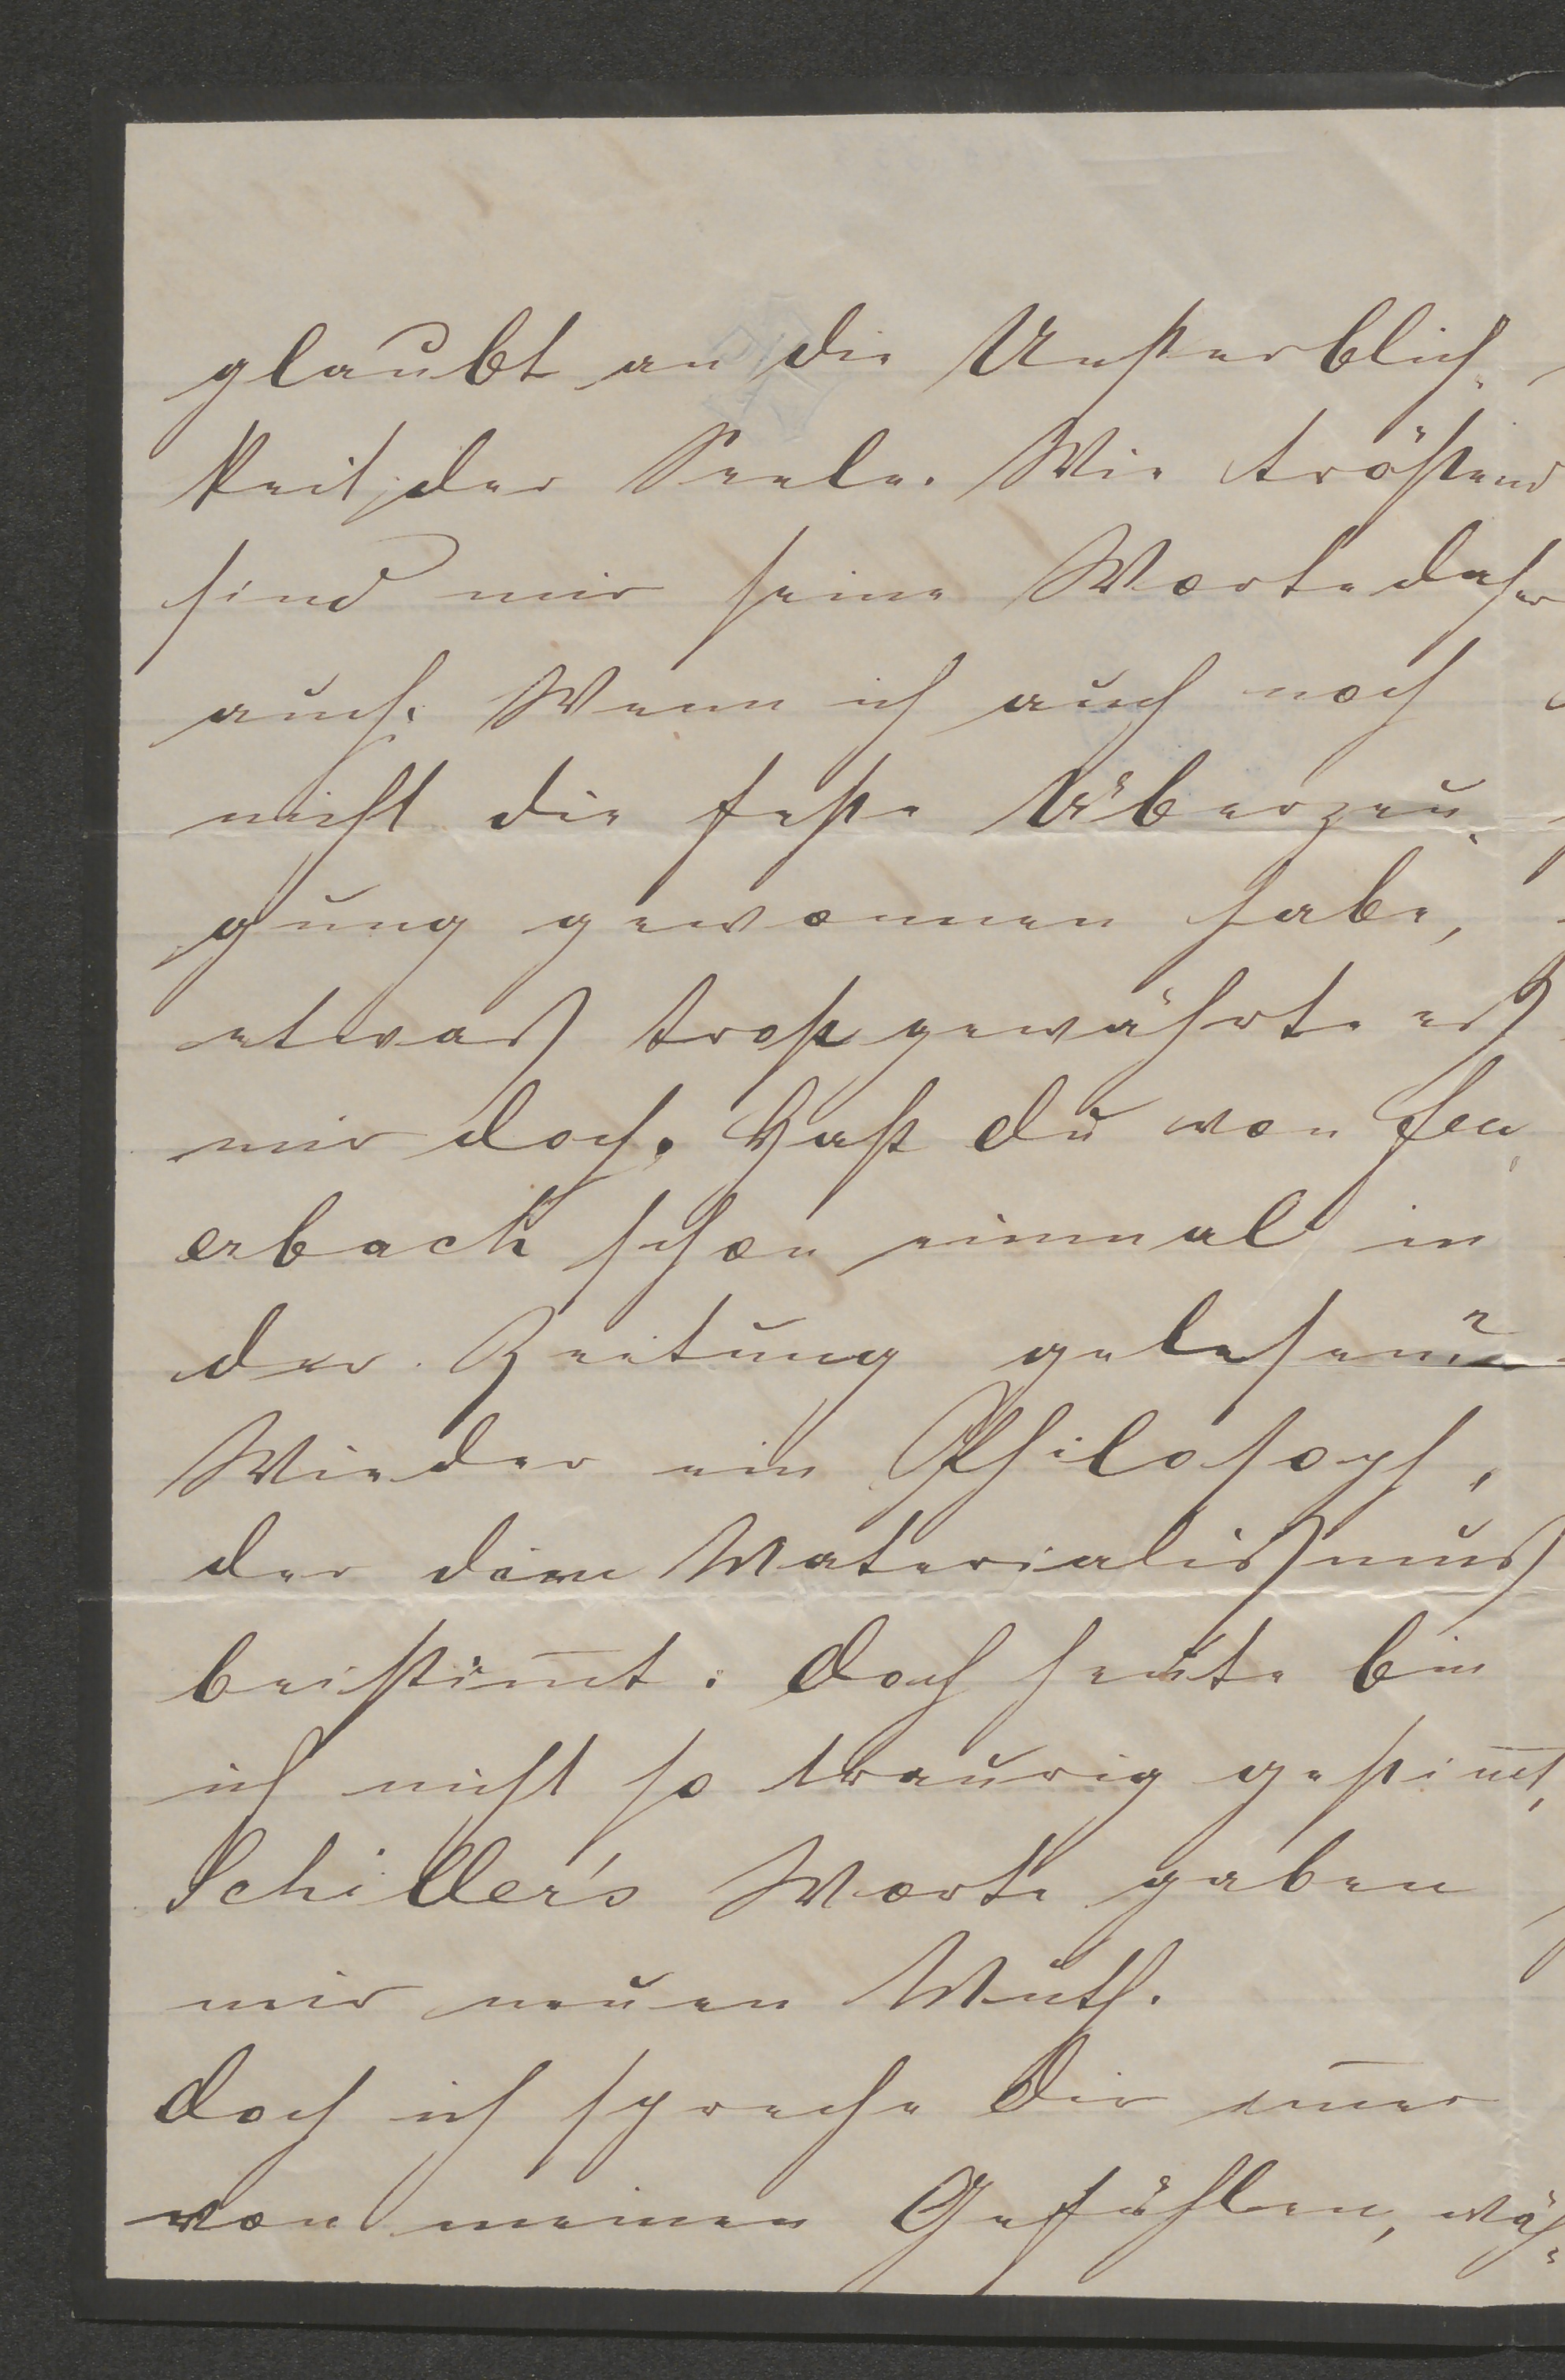 glaubt an die Unsterblich-
keit der Seele. Wie tröstend
sind mir seine Worte daher
auch. Wenn ich auch noch
nicht die feste Überzeu-
gung gewonnen habe,
etwas trost gewährte es
mir doch. Hast du von Feu-
erbach schon einmal in
der Zeitung gelesen?
Wieder ein Philosoph,
der dem Materialismus
beistim̅t. Doch heute bin
ich nicht so traurig gestim̅t,
Schiller's Worte gaben
mir neuen Muth.
Doch ich spreche Dir im̅er
von meinen Gefühlen, wäh-